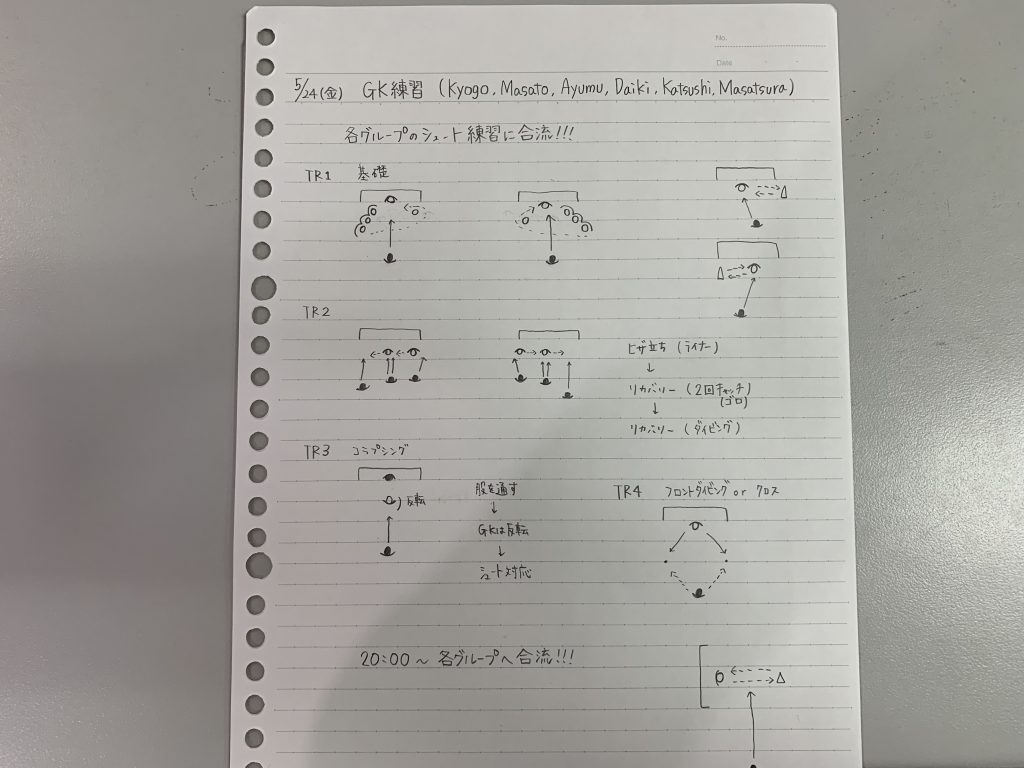 No.
Date
5/24(金) GK練習 (Kyogo, Masato, Ayumu, Daiki, Katsushi, Masatsura)
各グループのシュート練習に合流!!!
TR1 基礎
TR2
ヒザ立ち (ライナー)
↓
リカバリー (2回キャッチ)
(ゴロ)
↓
リカバリー (ダイビング)
TR3 コラプシング
反転
股を通す
↓
GKは反転
↓
シュート対応
TR4 フロントダイビング or クロス
20:00 ~ 各グループへ合流!!!